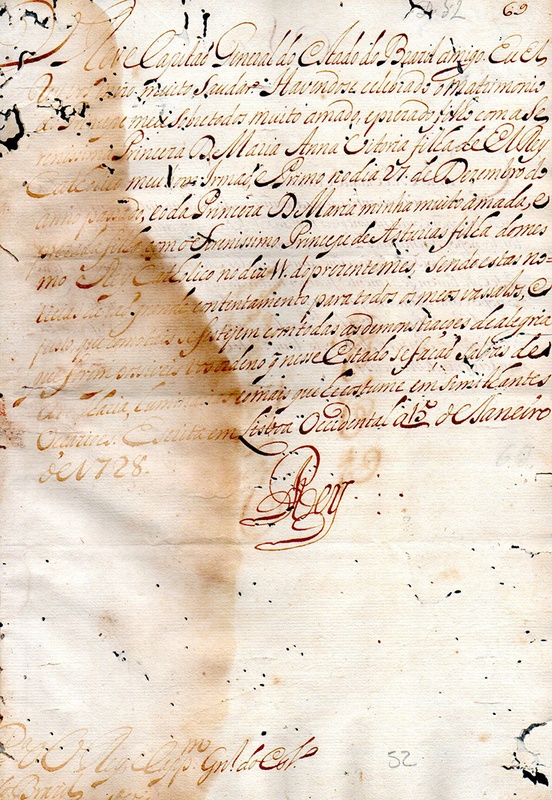 52 69
Capitão General do Estado do Brazil amigo. Eu El
muito Saudar. Havendose celebrado o matrimonio
do Principe meu sobretodos muito amado, e prezado filho com a Se
renissima Princeza D. Maria Anna Vitoria filha de El Rey
Catholico meu Irmaõ, e Primo no dia 27. de Dezembro do
anno passado, e o da Princeza D. Maria minha muito amada, e
filha com o Serenissimo Principe de Asturias filho do mes
mo Rey Catholico no dia 11. do prezente mes, sendo estas no=
ticias de grande contentamento para todos os meos vasalos, e
justo q como taes se festejem com todas as demonstraçoes de alegria
ordeno q nese Estado se façaõ salvas de
e o mais que he costume em similhantes
Occazioes. Escrita em Lisboa Occidental a 15 de Janeiro
de 1728.
Rey
Gn.l do Est.º
52